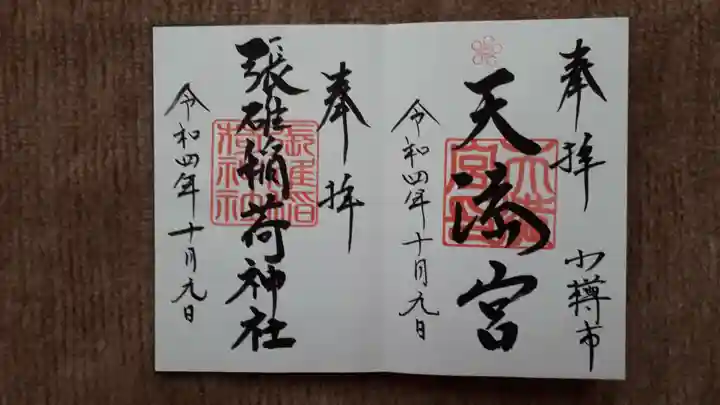 奉拝
小樽市
天満宮
令和四年十月九日
奉拝
張碓稲荷神社
令和四年十月九日